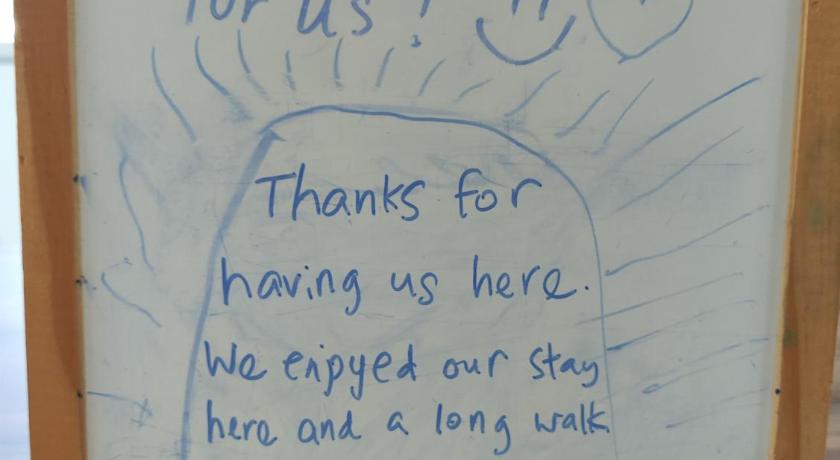 for us !
Thanks for
having us here.
We enjoyed our stay
here and a long walk